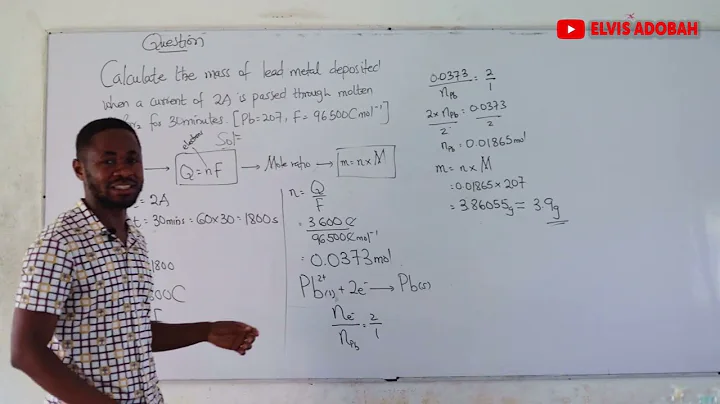 ELVIS ADOBAH
Question
Calculate the mass of lead metal deposited
when a current of 2A is passed through molten
for 30minutes. [Pb=207, F= 96500Cmol⁻¹]
Sol=
electron
Q=nF → Mole ratio → m=n×M
= 2A
t = 30mins = 60×30 = 1800s
1800
C
n = Q/F
= 3600C/96500Cmol⁻¹
= 0.0373mol
Pb²⁺(l) + 2e⁻ → Pb(s)
ne⁻/nPb = 2/1
0.0373/nPb = 2/1
2×nPb/2 = 0.0373/2
nPb = 0.01865mol
m = n×M
= 0.01865×207
= 3.86055g = 3.9g